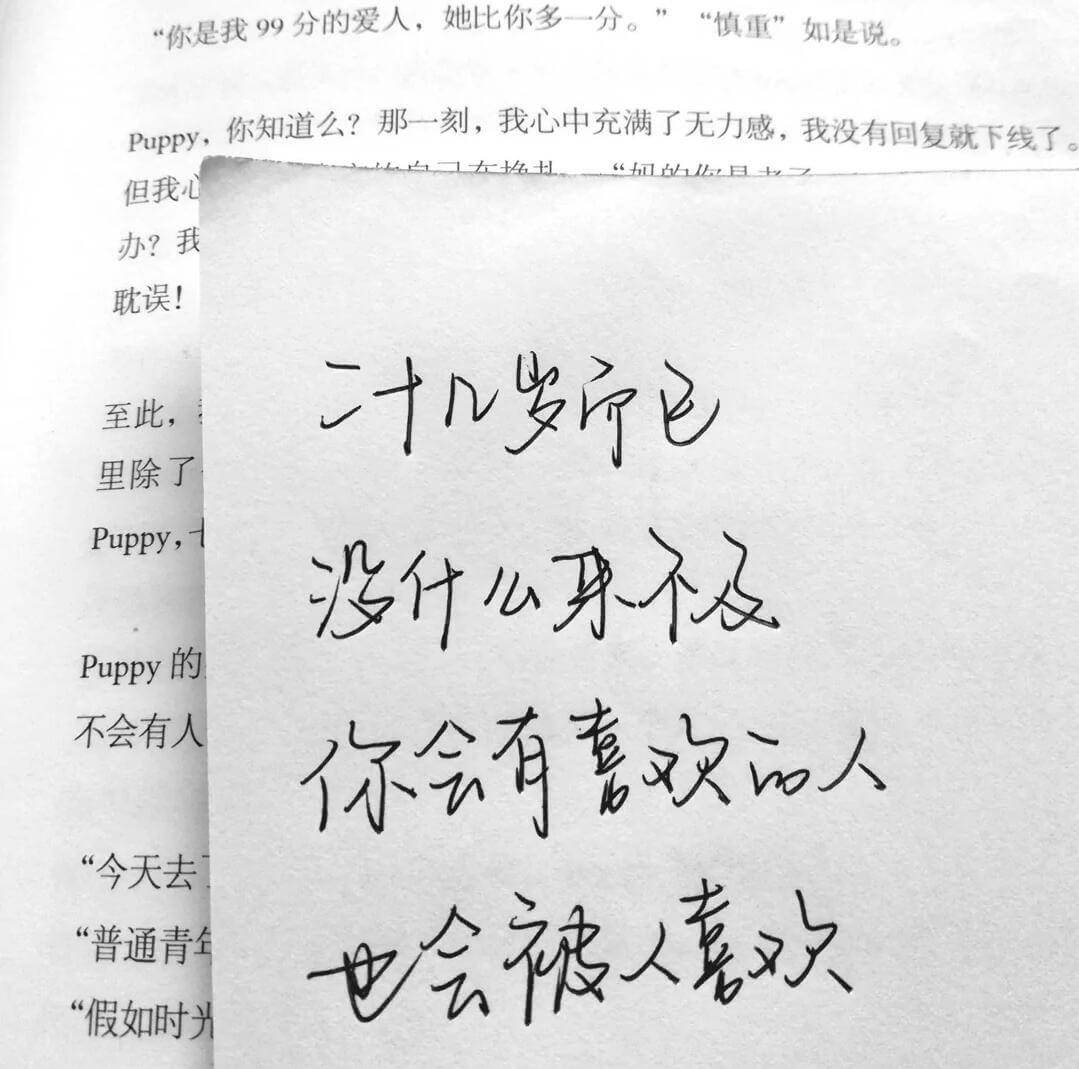 “你是我 99 分的爱人，她比你多一分。” “慎重” 如是说。
Puppy，你知道么？那一刻，我心中充满了无力感，我没有回复就下线了。
但我心
自己在挣扎
“妈的你是老子
办？我
耽误！
至此，
里除了
Puppy,
Puppy 的
不会有人
“今天去了
“普通青年
“假如时光
二十几岁而已
没什么来不及
你会有喜欢的人
也会被人喜欢